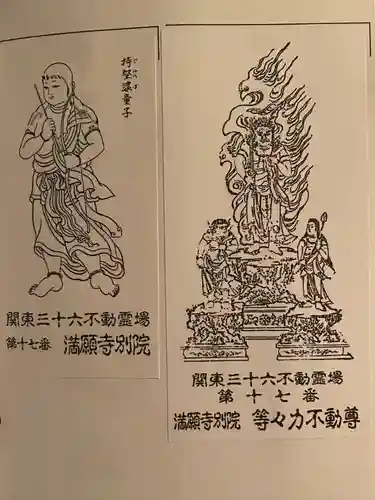 持堅婆童子
関東三十六不動霊場
第十七番 満願寺別院
関東三十六不動霊場
第十七番
満願寺別院 等々力不動尊